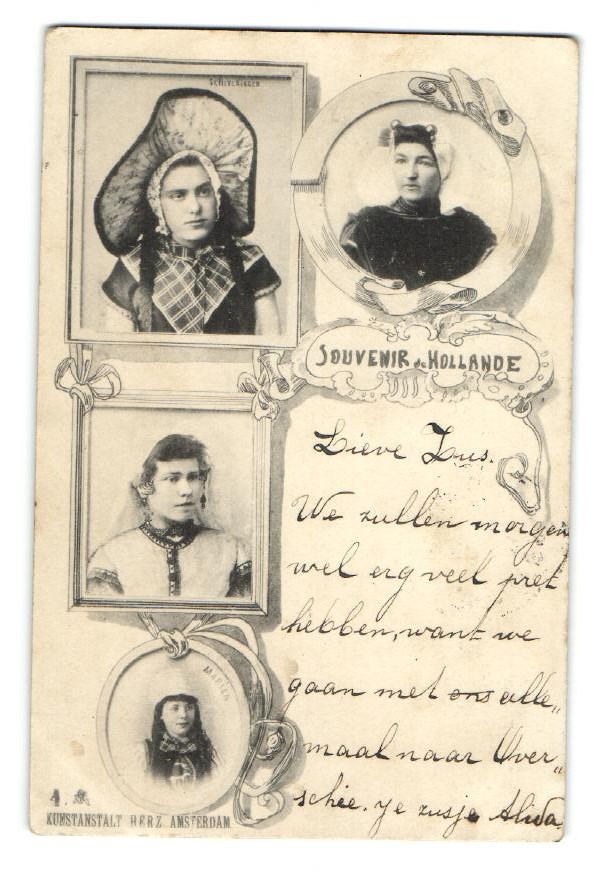 SCHEVENINGEN
SOUVENIR de HOLLANDE
Lieve Zus.
We zullen morgen
wel erg veel pret
hebben, want we
gaan met ons alle„
maal naar Over„
schie. je zusje Alida
MARKEN
1.
KUNSTANSTALT HERZ AMSTERDAM